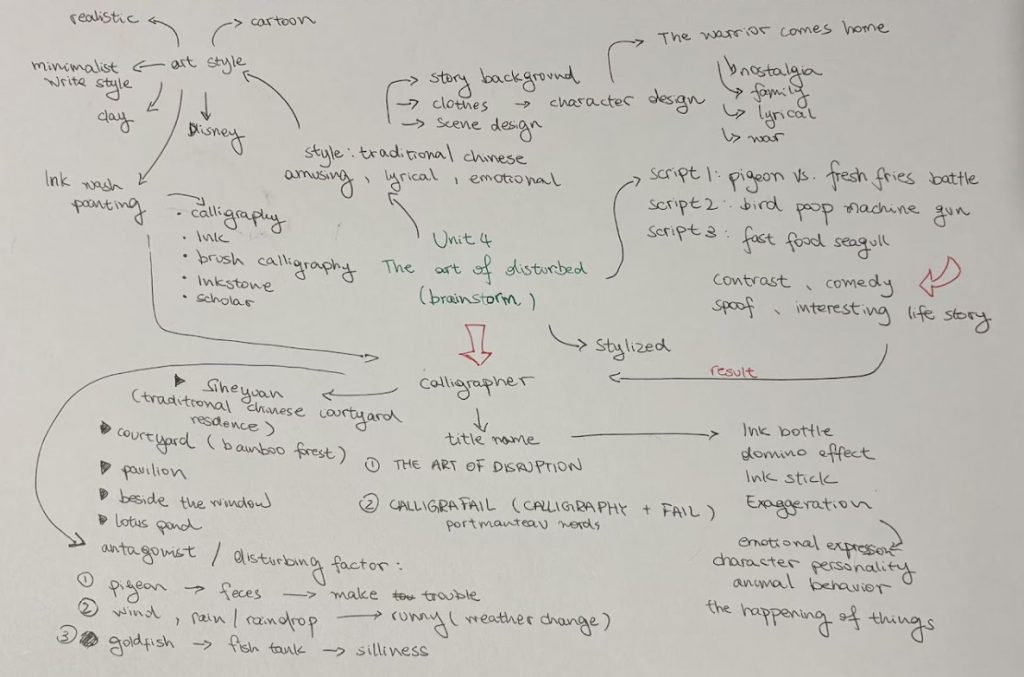 realistic
cartoon
art style
minimalist
write style
clay
Disney
Ink wash
painting
• calligraphy
• Ink
• brush calligraphy
• Inkstone
• scholar
story background
clothes → character design
scene design
The warrior comes home
nostalgia
family
lyrical
war
style: traditional chinese
amusing, lyrical, emotional
Unit 4
The art of disturbed
(brainstorm)
script 1: pigeon vs. fresh fries battle
script 2: bird poop machine gun
script 3: fast food seagull
contrast、comedy
spoof、interesting life story
stylized
result
calligrapher
Siheyuan
(traditional chinese courtyard
resdence)
courtyard (bamboo forest)
pavilion
beside the window
lotus pond
title name
① THE ART OF DISRUPTION
② CALLIGRAFAIL (CALLIGRAPHY + FAIL)
portmanteau words
Ink bottle
domino effect
Ink stick
Exaggeration
emotional expression
character personality
animal behavior
the happening of things
antagonist / disturbing factor:
① pigeon → feces → make trouble
② wind, rain / raindrop → runny (weather change)
③ goldfish → fish tank → silliness